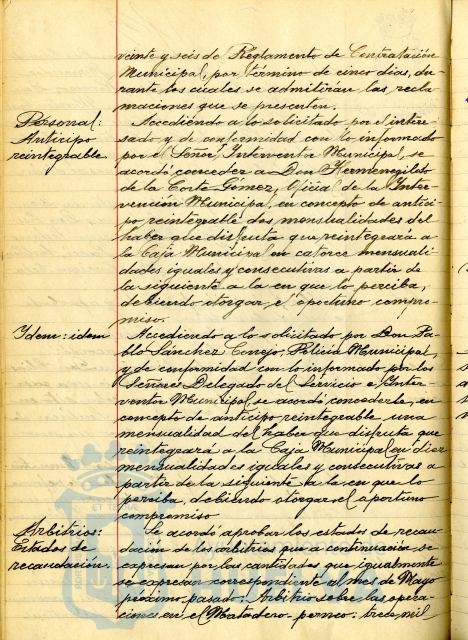 veinte y seis de Reglamento de Contratación
Municipal, por término de cinco dias, du-
rante los cuales se admitirán las recla-
maciones que se presenten.
Personal:
Anticipo
reintegrable.
Accediéndo a lo solicitado por el intere-
sado y de conformidad con lo informado
por el Señor Interventor Municipal, se
acordó conceder a Don Hermenegildo
de la Corte Gómez, Oficial de la Inter-
vención Municipal, en concepto de antici-
po reintegrable dos mensualidades del
haber que disfruta que reintegrará a
la Caja Municipal en catorce mensuali-
dades iguales y consecutivas a partir de
la siguiente a la en que lo perciba,
debiendo otorgar el oportuno compro-
miso.
Ydem: idem
Accediendo a lo solicitado por Don Pa-
blo Sánchez Conejo, Policia Municipal,
y de conformidad con lo informado por los
Señores Delegado del Servicio e Inter-
ventor Municipal se acordó concederle, en
concepto de anticipo reintegrable una
mensualidad del haber que disfruta que
reintegrará a la Caja Municipal en diez
mensualidades iguales y consecutivas a
partir de la siguiente a la en que lo
perciba, debiendo otorgar el oportuno
compromiso
Arbitrios:
Estados de
recaudación.
Se acordó aprobar los estados de recau-
dación de los arbitrios que a continuación se
expresan por las cantidades que igualmente
se expresan correspondiente al mes de Mayo
próximo pasado: Arbitrio sobre las opera-
ciones en el Matadero-porneo: trece mil